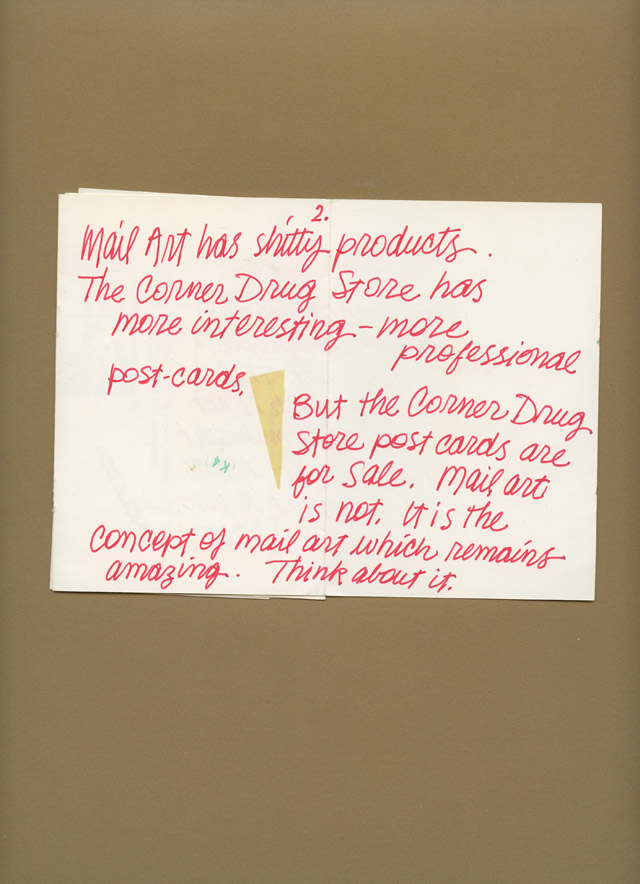 2.
Mail Art has shitty products.
The Corner Drug Store has
more interesting – more
professional
post-cards.
But the Corner Drug
Store post cards are
for sale. Mail art
is not. It is the
concept of mail art which remains
amazing. Think about it.